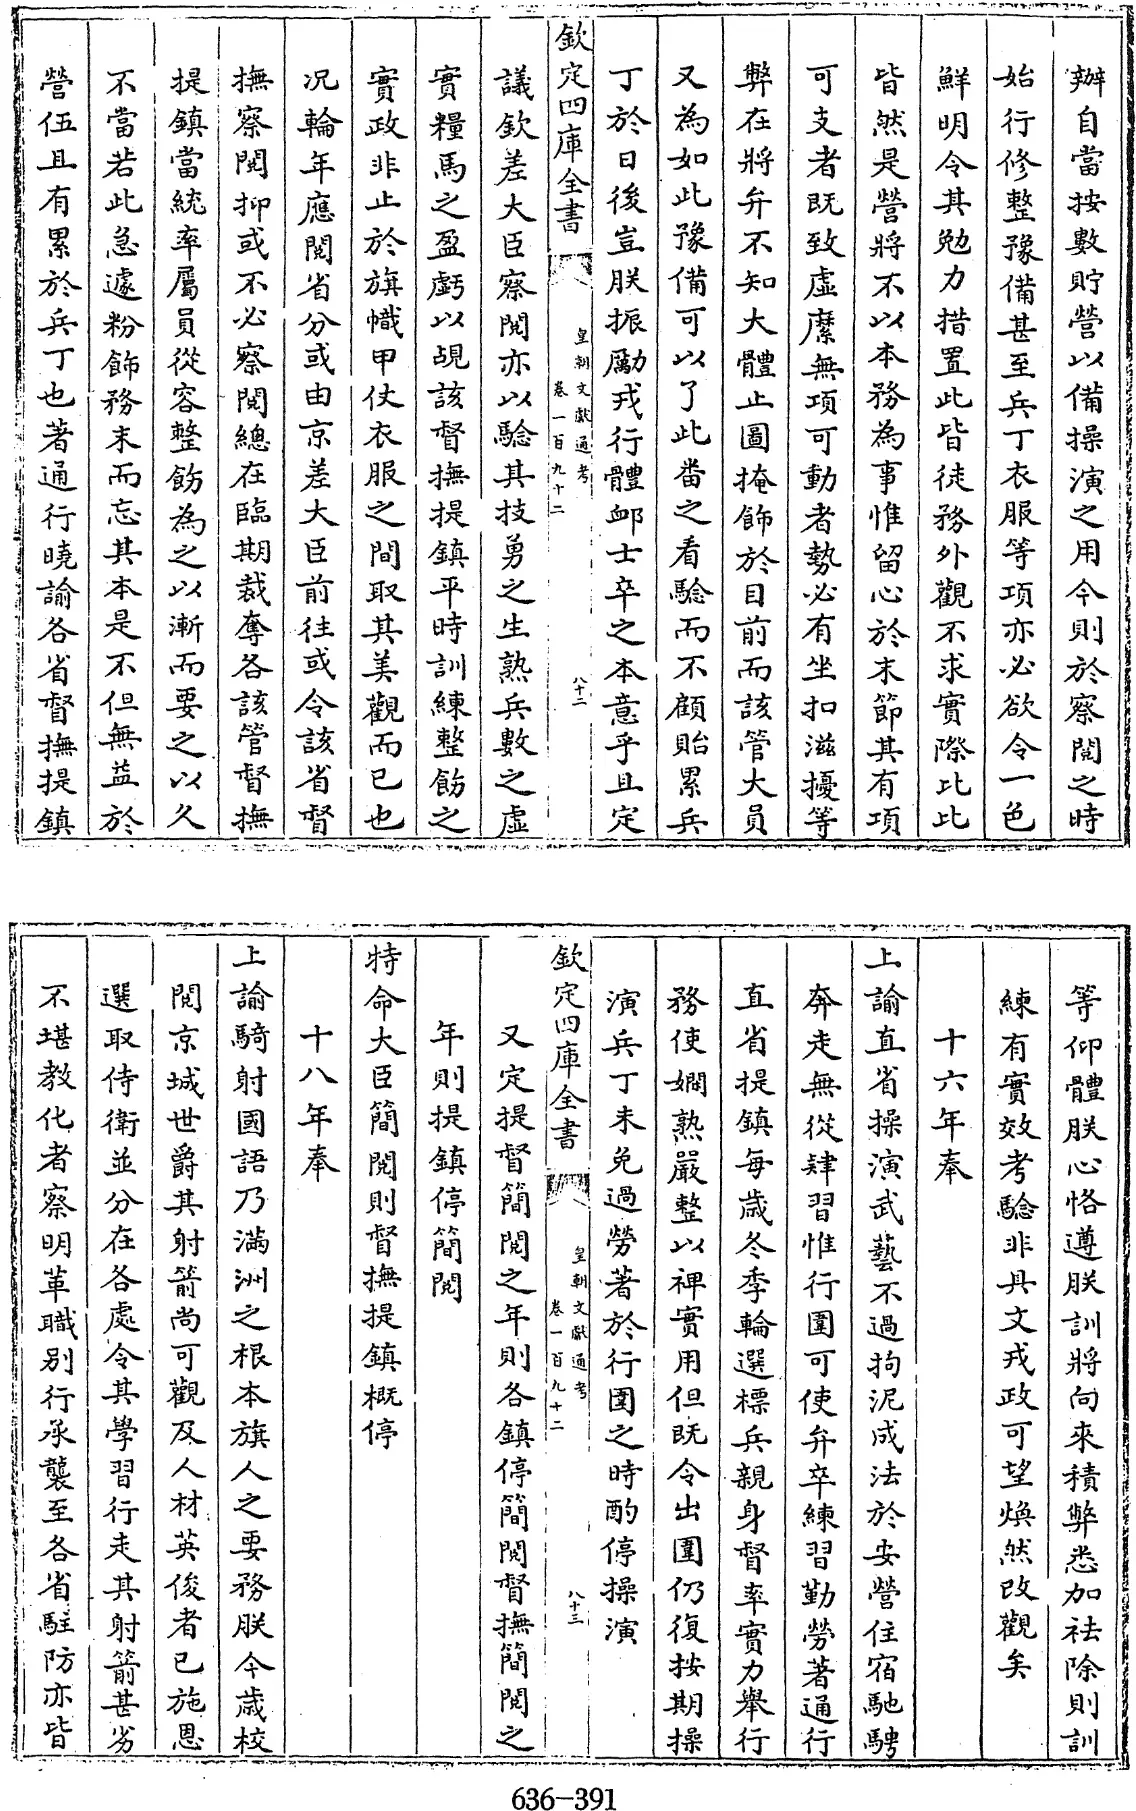 辦自當按數貯營以備操演之用今則於察閱之時
始行修整豫備甚至兵丁衣服等項亦必欲令一色
鮮明令其勉力措置此皆徒務外觀不求實際比比
皆然是營將不以本務為事惟留心於末節其有項
可支者既致虛縻無項可動者勢必有坐扣滋擾等
弊在將弁不知大體止圖掩飾於目前而該管大員
又為如此豫備可以了此畨之看驗而不顧貽累兵
丁於日後豈朕振勵戎行體䘏士卒之本意乎且定
欽定四庫全書
皇朝文獻通考
卷一百九十二
八十二
議欽差大臣察閱亦以驗其技勇之生熟兵數之虛
實糧馬之盈虧以覘該督撫提鎮平時訓練整飭之
實政非止於旗幟甲仗衣服之間取其美觀而已也
况輪年應閱省分或由京差大臣前往或令該省督
撫察閱抑或不必察閱總在臨期裁奪各該管督撫
提鎮當統率屬員從容整飭為之以漸而要之以久
不當若此急遽粉飾務末而忘其本是不但無益於
營伍且有累於兵丁也著通行曉諭各省督撫提鎮
等仰體朕心恪遵朕訓將向來積弊悉加袪除則訓
練有實效考驗非具文戎政可望煥然改觀矣
十六年奉
上諭直省操演武藝不過拘泥成法於安營住宿馳騁
奔走無從肄習惟行圍可使弁卒練習勤勞著通行
直省提鎮每歲冬季輪選標兵親身督率實力舉行
務使嫻熟嚴整以裨實用但既令出圍仍復按期操
演兵丁未免過勞著於行圍之時酌停操演
欽定四庫全書
皇朝文獻通考
卷一百九十二
八十三
又定提督簡閱之年則各鎮停簡閱督撫簡閱之
年則提鎮停簡閱
特命大臣簡閱則督撫提鎮概停
十八年奉
上諭騎射國語乃滿洲之根本旗人之要務朕今歲校
閱京城世爵其射箭尚可觀及人材英俊者已施恩
選取侍衛並分在各處令其學習行走其射箭甚劣
不堪教化者察明革職别行承襲至各省駐防亦皆
636-391